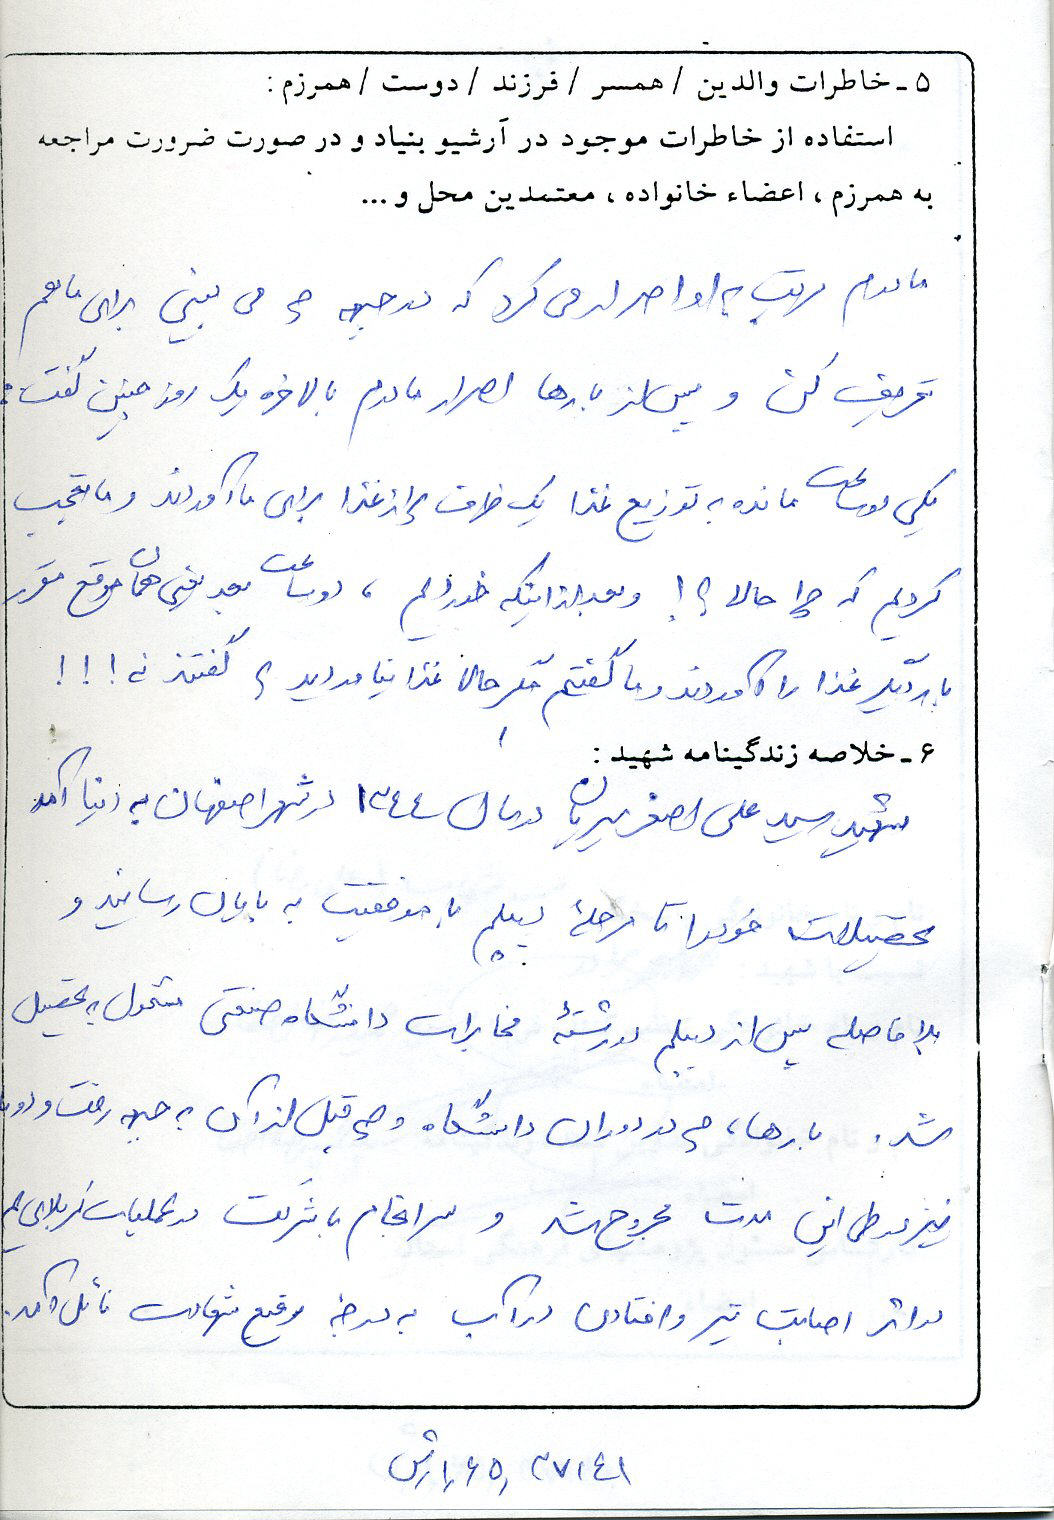 ۵ ـ خاطرات والدین / همسر / فرزند / دوست / همرزم :
استفاده از خاطرات موجود در آرشیو بنیاد و در صورت ضرورت مراجعه
به همرزم ، اعضاء خانواده ، معتمدین محل و ...
مادرم مرتب به او اصرار می کرد که در جبهه چه می بینی برای ما هم
تعریف کن و پس از بارها اصرار مادرم بالاخره یک روز چنین گفت :
یکی دو ساعت مانده به توزیع غذا یک ظرف پر از غذا برای ما آوردند و ما تعجب
کردیم که چرا حالا ؟! و بعد از اینکه خوردیم ، دو ساعت بعد یعنی همان موقع مقرر
بار دیگر غذا را آوردند و ما گفتیم مگر حالا غذا نیاوردید ؟ گفتند نه ! ! !
۶ ـ خلاصه زندگینامه شهید :
شهید سید علی اصغر میریان در سال ۱۳۴۴ در شهر اصفهان به دنیا آمد
تحصیلات خود را تا مرحلهٔ دیپلم با موفقیت به پایان رسانید و
بلافاصله پس از دیپلم در رشتهٔ مخابرات دانشگاه صنعتی مشغول به تحصیل
شد . بارها ، چه در دوران دانشگاه و چه قبل از آن به جبهه رفت و دوبار
نیز در طی این مدت مجروح شد و سرانجام با شرکت در عملیات کربلای
در اثر اصابت تیر و افتادن در آب به درجه رفیع شهادت نائل آمد .